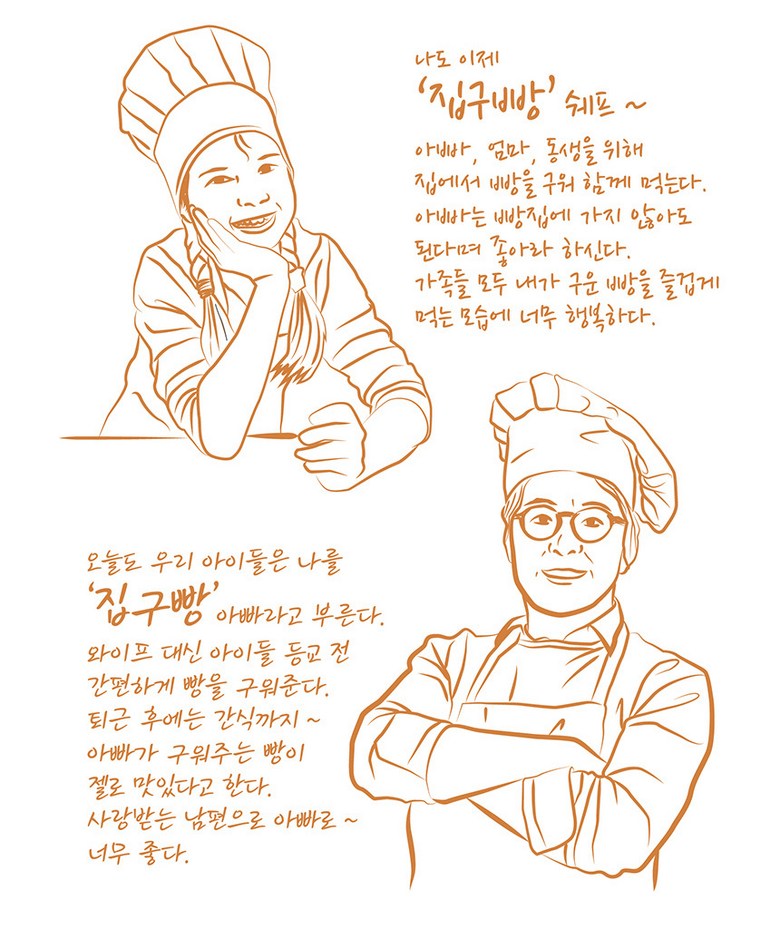 나도 이제
'집구빵' 쉐프 ~
아빠, 엄마, 동생을 위해
집에서 빵을 구워 함께 먹는다.
아빠는 빵집에 가지 않아도
된다며 좋아라 하신다.
가족들 모두 내가 구운 빵을 즐겁게
먹는 모습에 너무 행복하다.
오늘도 우리 아이들은 나를
'집구빵' 아빠라고 부른다.
와이프 대신 아이들 등교 전
간편하게 빵을 구워준다.
퇴근 후에는 간식까지 ~
아빠가 구워주는 빵이
젤로 맛있다고 한다.
사랑받는 남편으로 아빠로 ~
너무 좋다.